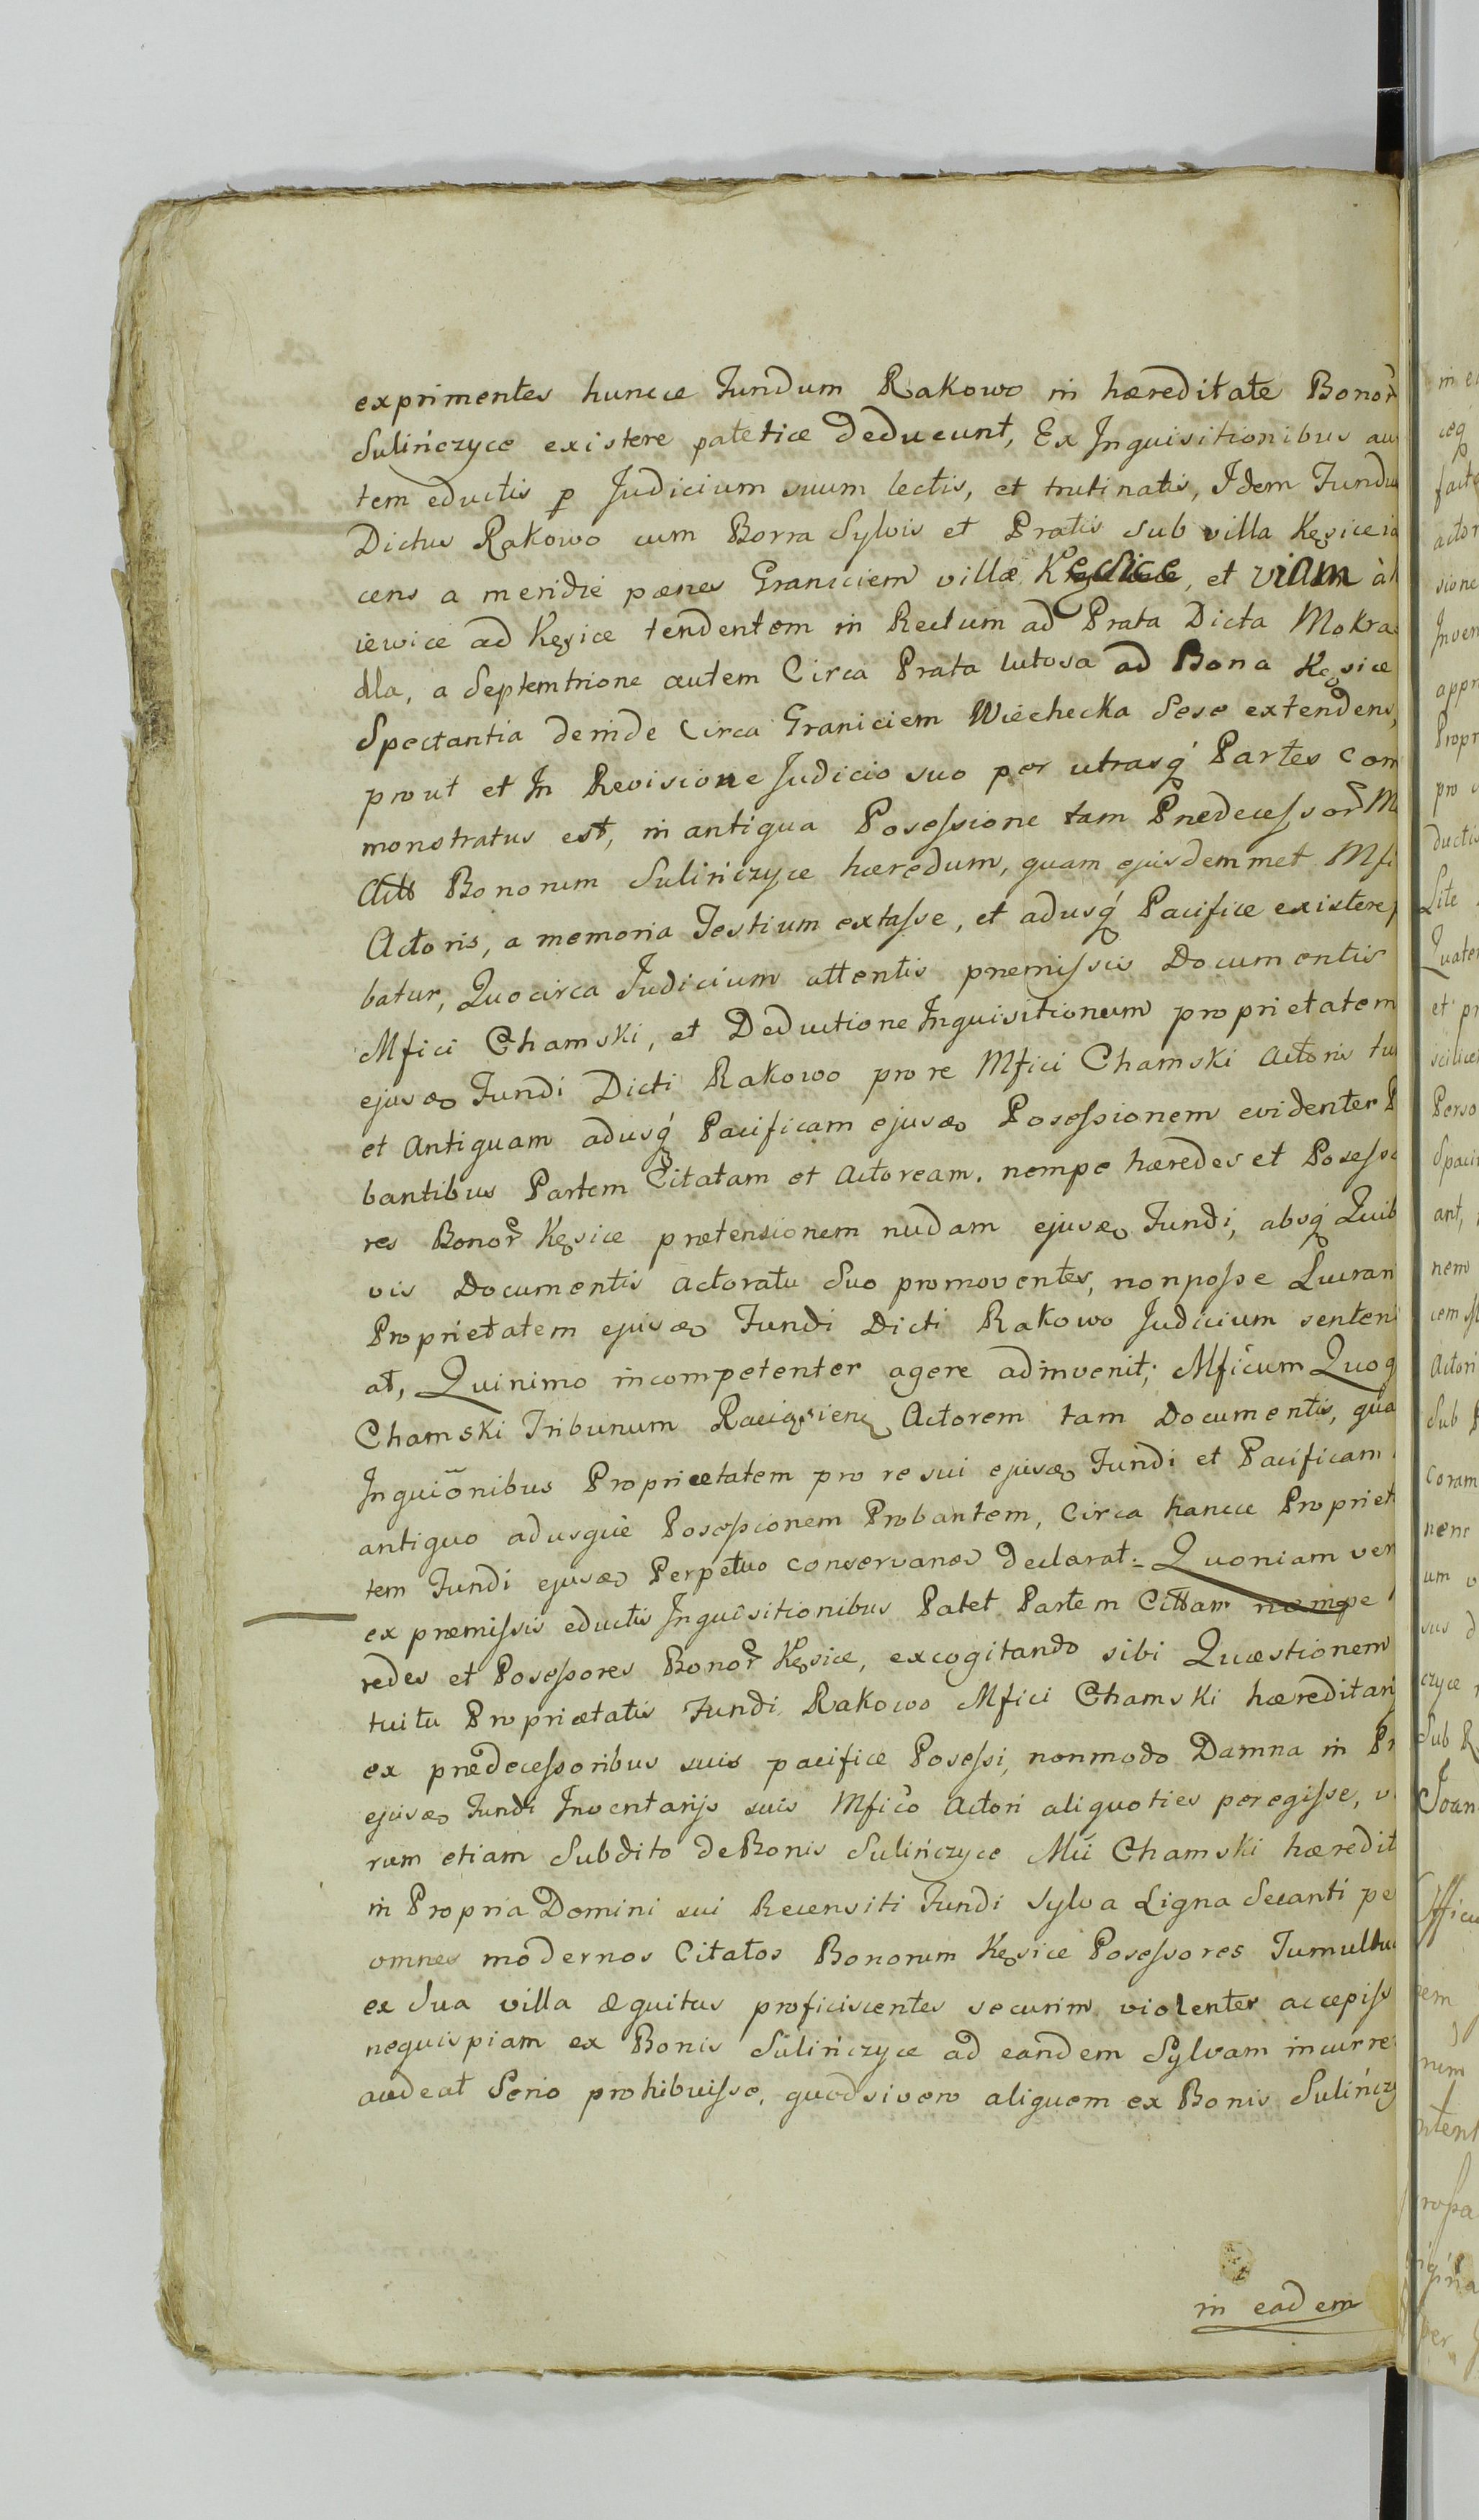 exprimentes huncce Fundum Rakowo in hæreditate Bonor
Sulińczyce existere patetice deducunt, Ex Inquisitionibus au
tem eductis p Judicium suum lectis, et trutinatis, Idem Fundu
Dictus Rakowo cum Borra Sylvis et Pratis sub villa Kęsice ia
cens a meridie pænes Graniciem villæ Kęsice, et viam à
iewice ad Kęsice tendentem in Rectum ad Prata Dicta Mokra
dla, a Septemtrione autem Circa Prata lutosa ad Bona Kęsice
Spectantia deinde Circa Graniciem Wiechecka Sese extendens,
prout et In Revisione Judicio suo per utrasq Partes Com
monstratus est, in antiqua Posessione tam Prædecessor M
Actis Bonorum Sulińczyce hæredum, quam ejusdemmet Mfi
Actoris, a memoria Testium extasse, et adusq Pacifice existere
batur, Quocirca Judicium attentis præmissis Documentis
Mfici Chamski, et Deductione Inquisitionum proprietatem
ejusd Fundi Dicti Rakowo pro re Mfici Chamski Actoris tu
et Antiquam adusq Pacificam ejusd Posessionem evidenter P
bantibus Partem Citatam et Actoream. nempe hæredes et Posesso
res Bonor Kęsice prætensionem nudam ejusd Fundi, absq Quib
vis Documentis Actoratu Suo promoventes, non posse Lucran
Proprietatem ejusd Fundi Dicti Rakowo Judicium senten
at, Quinimo incompetenter agere adinvenit; Mficum Quoq
Chamski Tribunum Raciąsien Actorem tam Documentis, qua
Inquiōnibus Proprietatem pro re sui ejusd Fundi et Pacificam
antiquo adusque Posessionem Probantem, Circa hancce Propriet
tem Fundi ejusd Perpetuo conservand declarat = Quoniam ver
ex præmissis eductis Inquisitionibus Patet Partem Cittam nempe
redes et Posessores Bonor Kęsice, excogitando sibi Quæstionem
tuitu Proprietatis Fundi Rakowo Mfici Chamski hæreditarij
ex prædecessoribus suis pacifice Posessi, nonmodo Damna in Pr
ejusd Fundi Inventarijs suis Mfico Actori aliquoties peregisse, v
rum etiam Subdito de Bonis Sulińczyce Mii Chamski hæredit
in Propria Domini sui Recensiti Fundi Sylva Ligna Secanti pe
omnes modernos Citatos Bonorum Kęsice Posessores Tumultu
ex Sua villa æquitus proficiscentes securim violenter accepiss
nequispiam ex Bonis Sulińczyce ad eandem Sylvam incurre
audeat Serio prohibuisse, quodsi vero aliquem ex Bonis Sulińczy
in eadem